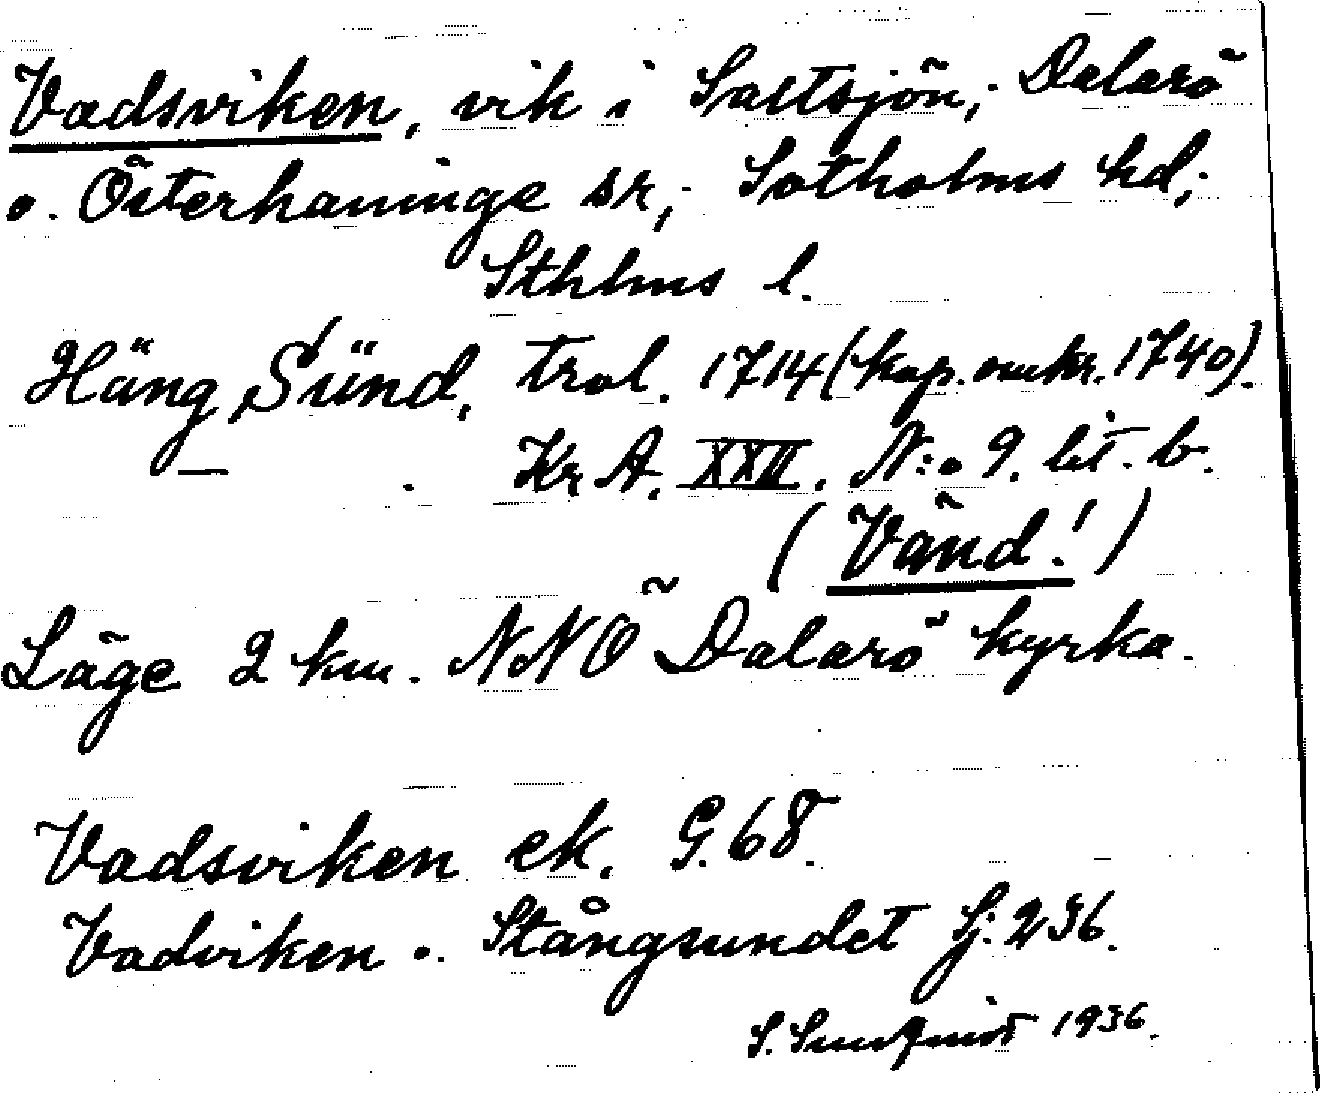 Vadsviken, vik i Saltsjön; Dalarö
o. Österhaninge sn; Sotholms hd;
Sthlms l.
Häng Sünd, trol. 1714 (kop. omkr. 1740).
Kr A. XXII. N:o 9. lit. b.
(Vänd!)
Läge 2 km. NNÖ Dalarö kyrka.
Vadsviken ek. G. 68.
Vadviken o. Stångsundet Sj. 236.
S. Sundquist 1936.